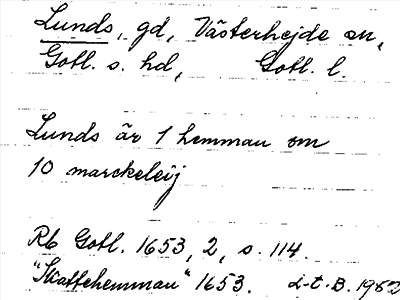 Lunds, gd, Västerhejde sn,
Gotl. s. hd, Gotl. l.
Lunds är 1 hemman om
10 marckeleij
Rb Gotl. 1653, 2, s. 114.
"Skattehemman" 1653. L-t. B. 1983